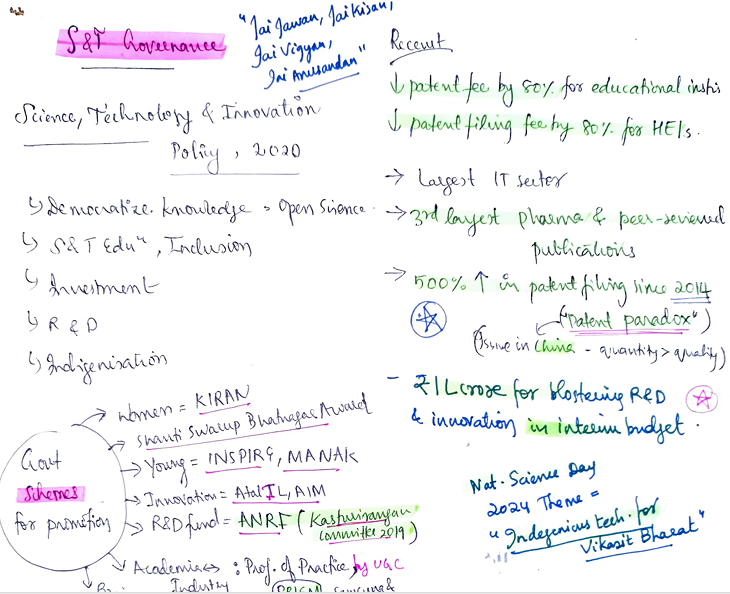 S&T Governance
"Jai Jawan, Jai Kisan,
Jai Vigyan,
Jai Anusandan"
Science, Technology & Innovation
Policy, 2020
↳ Democratize knowledge = Open Science.
↳ S&T Eduⁿ, Inclusion
↳ Investment
↳ R & D
↳ Indigenisation
Govt
schemes
for promotion
→ Women = KIRAN
→ Shanti Swarup Bhatnagar Award
→ Young = INSPIRE, MANAK
→ Innovation = Atal IL, AIM
→ R&D fund = ANRF (Kasturirangan
Committee 2019)
→ Academia ↔ : Prof. of Practice, by UGC
Industry PRISM
Recent
↓ patent fee by 80% for educational instis
↓ patent filing fee by 80% for HEIs.
→ Largest IT sector
→ 3rd largest pharma & peer-reviewed
publications
→ 500% ↑ in patent filing since 2014
("Patent paradox")
(Issue in China - quantity > quality)
- ₹1L crore for blostering R&D
& innovation in interim budget.
Nat. Science Day
2024 Theme =
"Indegenius tech. for
Vikasit Bharat"